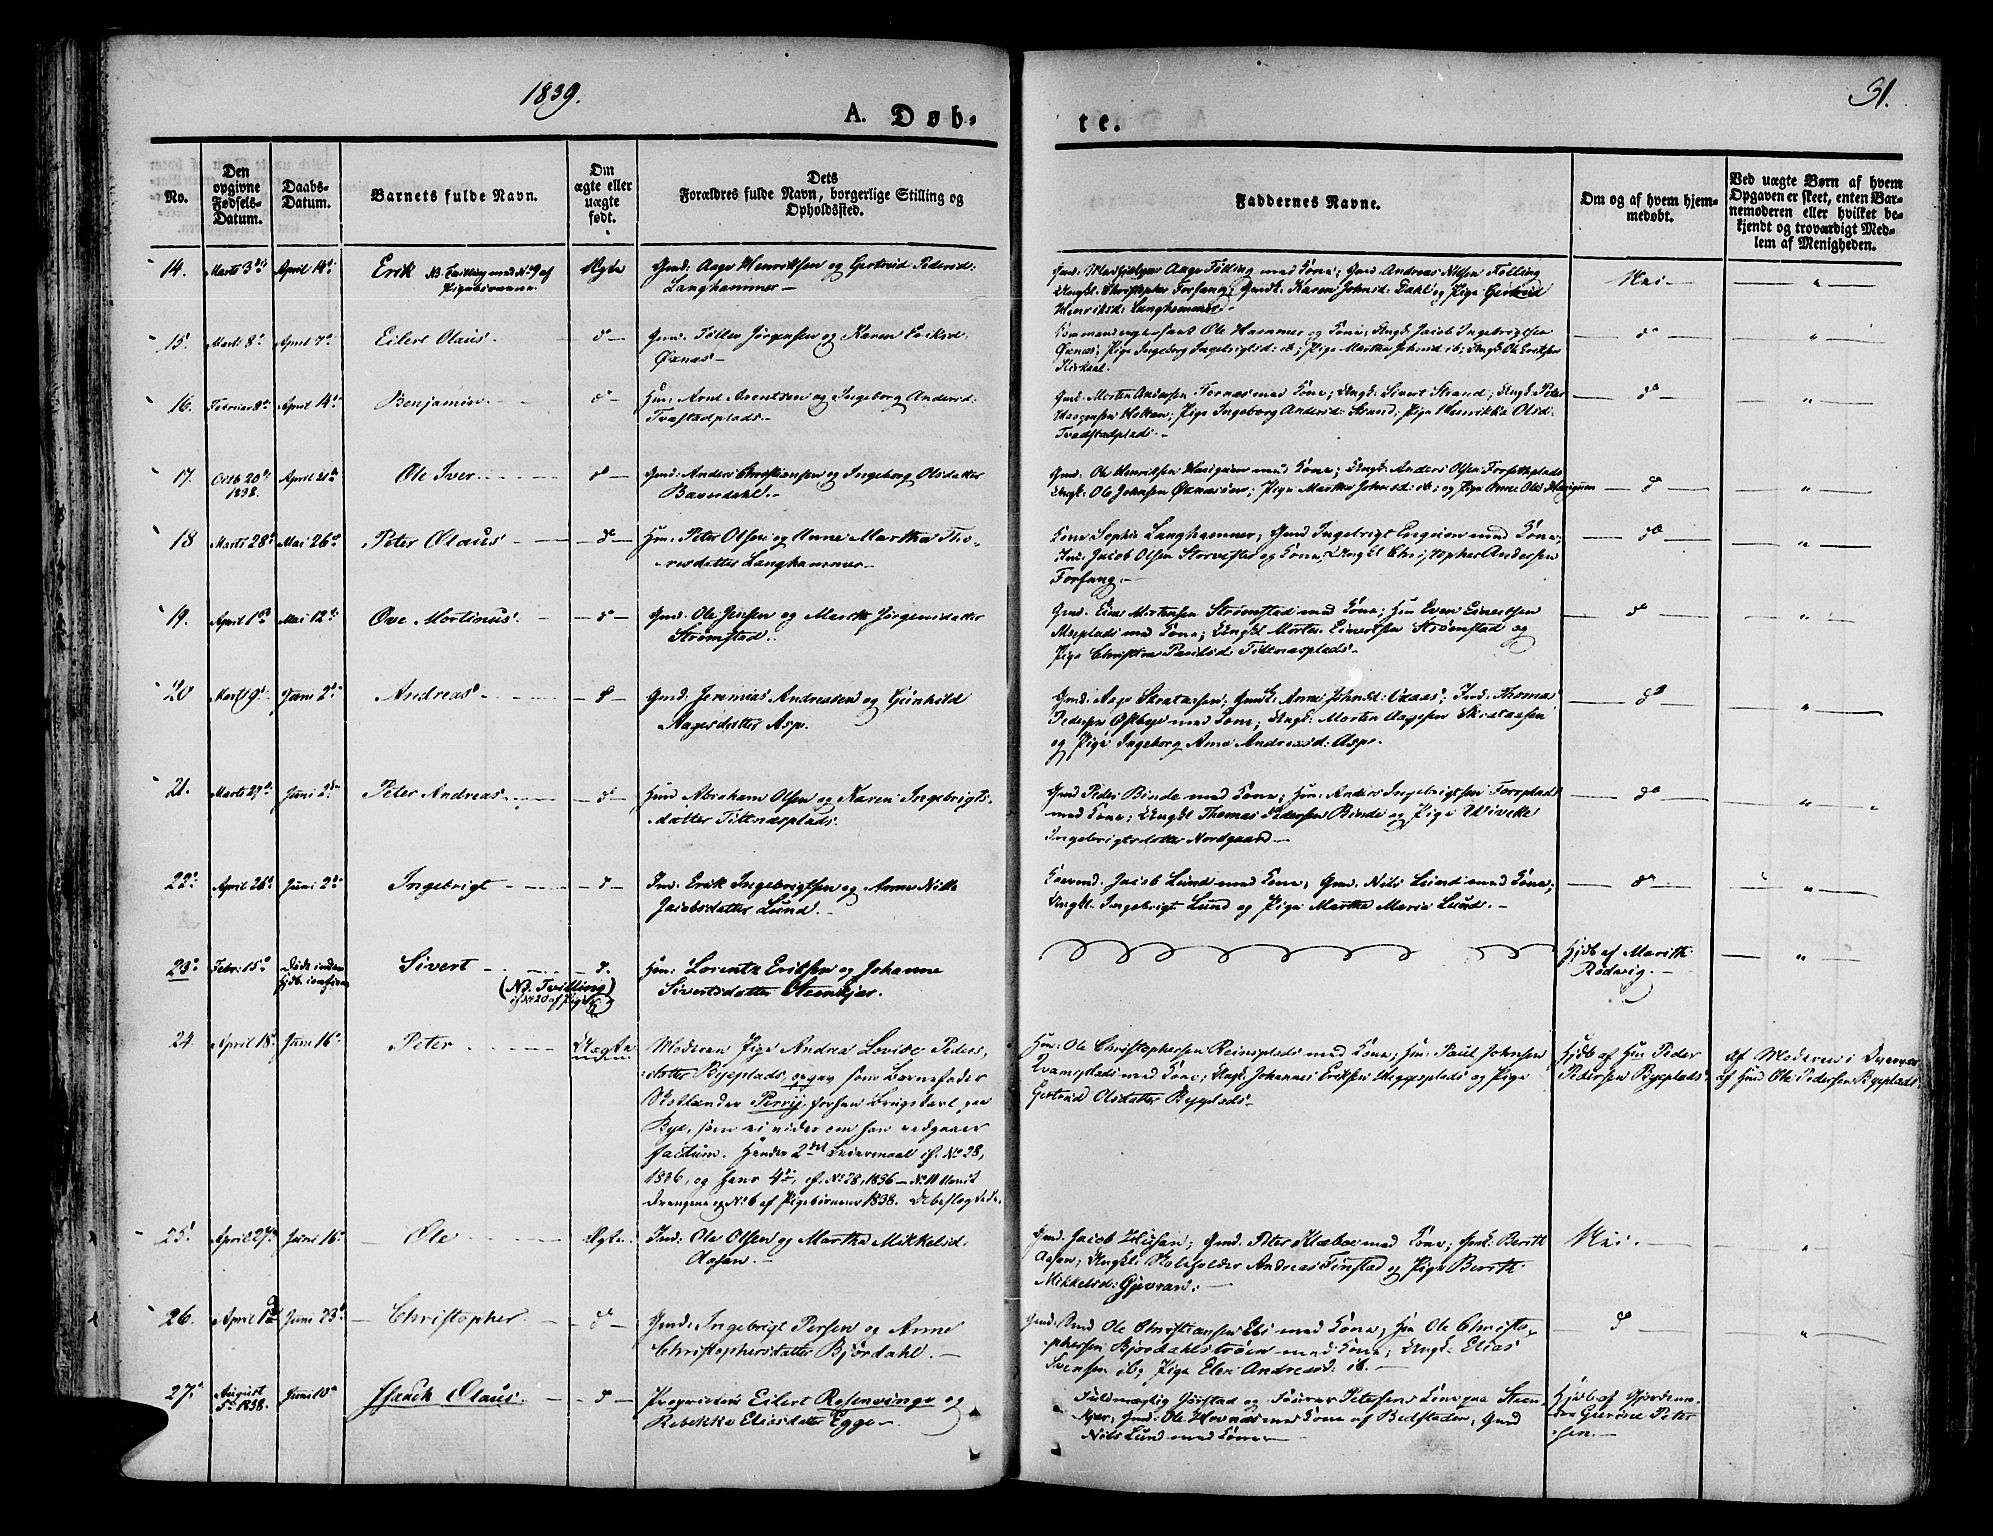 1839.
31.
A. Døb-
te.
No.
Den opgivne Fødsels-Datum.
Daabs-Datum.
Barnets fulde Navn.
Om ægte eller uægte født.
Dets Forældres fulde Navn, borgerlige Stilling og Opholdssted.
Faddernes Navne.
Om og af hvem hjem-medøbt.
Ved uægte Børn af hvem Opgaven er skeet, enten Bar-nemoderen eller hvilket be-kjendt og troværdigt Med-lem af Menigheden.
14. Marts 3de April 14de Erik NB. Tvilling med No 9 af Ægte Gmd: Aage Henriksen og Gertrud Pedersd:
Pigebørnene. Langhammer
Aage Følling med Kone; Gmd Andreas Nilsen Følling
Ungk: Christopher Forfang; Karen Johnsd: Dahl og Pige Gertrud
Henriksd: Langhammer.
Nei
15. Marts 8de April 7de Eilert Olaus do Gmd: Føllen Jörgensen og Karen Eriksd:
Øxnæs
Ole Hammer og Kone, Ungk: Jacob Ingebrigtsen
Øxnæs; Pige Ingeborg Ingebrigtsd: ib; Pige Martha Johnsd ib; Ungk: Ole Eriksen
do
16. Februar 8de April 14de Benjamin do Hm: Arnt Arentsen og Ingeborg Andersd:
Tvæstadplads
Gmd: Morten Andersen Fornæs med Kone; Ungk: Sivert Strand; Ungk: Peter
Haagensen Holten; Pige Ingeborg Andersd: Strand; Pige Henrikka Olsd:
Tvædstadplads.
do
17. Octb 20de 1838. April 21de Ole Iver do Gmd: Anders Christiansen og Ingeborg Olsdatter
Baverdahl.
Gmd: Ole Henriksen med Kone; Ungk: Anders Olsen Forsethplads
Ungk: Ole Johnsen Øxnæsøen; Pige Martha Johnsd: ib; og Pige Anne Olsd
do
18 Marts 28de Mai 26de Peter Olaus do Hm: Peter Olsen og Anne Martha Tho-
resdatter Langhammer
Kone Sophie Langhammer; Gmd Ingebrigt med Kone;
Ind: Jacob Olsen Storvestre og Kone; Ungkl Christopher Andersen
Forfang.
do
19. April 1ste Mai 12te Ove Mortinus do Gmd: Ole Jensen og Marth Jörgensdatter
Strømstad.
Gmd: Mortensen Strømstad med Kone; Hm Even Einertsen
med Kone; Ungkl Morten Einertsen Strømstad og
Pige Christine Paulsd: Tiltnæsplads.
do
20 Marts 9de Juni 2den Andreas do Gmd: Jeremias Andreasen og Gunhild
Aagesdatter Asp.
Gmd: Aage Skrataasen; Gmdk: Anne Johnsd: Oxaas; Ind: Thomas
Pedersen Østbye med Kone; Ungk: Morten Aagesen Skrataasen
og Pige Ingeborg Anna Andreasd: Asp.
do
21. Marts 27de Juni 2den Peter Andreas do Hmd Abraham Olsen og Karen Ingebrigts-
datter Tiltnæsplads.
Gmd Peder Binde med Kone; Hm: Anders Ingebrigtsen Forsplads
med Kone; Ungkl Thomas Pedersen Binde og Pige Wivekke
Ingebrigtsdatter Nordgaard.
do
22. April 26de Juni 2den Ingebrigt do Ind: Erik Ingebrigtsen og Anne Nille
Jacobsdatter Lund.
Jacob Lund med Kone; Gmd: Nils Lund med Kone;
Ungkl. Ingebrigt Lund og Pige Martha Maria Lund.
do
23. Febr: 15de Døde inden Sivert do. Hm: Lorents Eriksen og Johanne
(NB. Tvilling) Sivertsdatter Steenkjer.
cf No 20 af Pigeb:
Hjdb af Marith
Rødvig.
24. April 18de Juni 16de Peter Uægte Moderen Pige Andrea Lovise Peders-
datter Byeplads, opgav som Barnefader
Skotlænder Perrij, forhen Brugskarl paa
Bye, som ei vides om han vedgaaer
factum. Hendes 2det Leiermaal cf. No 28,
1836, og hans 4de, cf. No 28, 1836 – No 11
Drengene og No 6 af Pigebørnene 1838.
Hm: Ole Christophersen Reinsplads med Kone; Hm: Paul Johnsen
Qvamsplads med Kone; Ungk: Johannes Eriksen og Pige
Gertrud Olsdatter Byeplads.
Hjdb af Hm Peder
Pedersen Byeplads.
Af Moderen i Overvær
af Hmd Ole Pedersen Byeplads.
25. April 27de Juni 16de Ole Ægte. Ind: Ole Olsen og Martha Mikkelsd:
Aasen.
Gmd. Jacob Husan; Gmd. Peter Klæboe med Kone; Gmdk: Berith
Aasen; Ungk: Skoleholder Andreas Finstad og Pige Berith
Mikkelsd: Gjevran.
Nei.
26. April 19de Juni 23de Christopher do Gmd: Ingebrigt Persen og Anne
Christophersdatter Björdahl.
Gmd: Ole Christiansen Elsi med Kone; Hm Ole Christo-
phersen Bjørdahlstrøen med Kone; Ungk: Elias
Svensen ib; Pige Elen Andreasd. ib.
do
27. August 5te 1838. Juni 10de Isach Olaus. do Proprietair Eilert Rosenvinge og
Rebekka Eliasdatter Egge.
Fuldmægtig Gørstad og Petersens Kone paa Steen-
kjær, Gmd: Ole Hovnæs med Kone af Bedstaden, Gmd
Nils Lund med Kone
Hjdb af Gjordemo-
der Petersen.